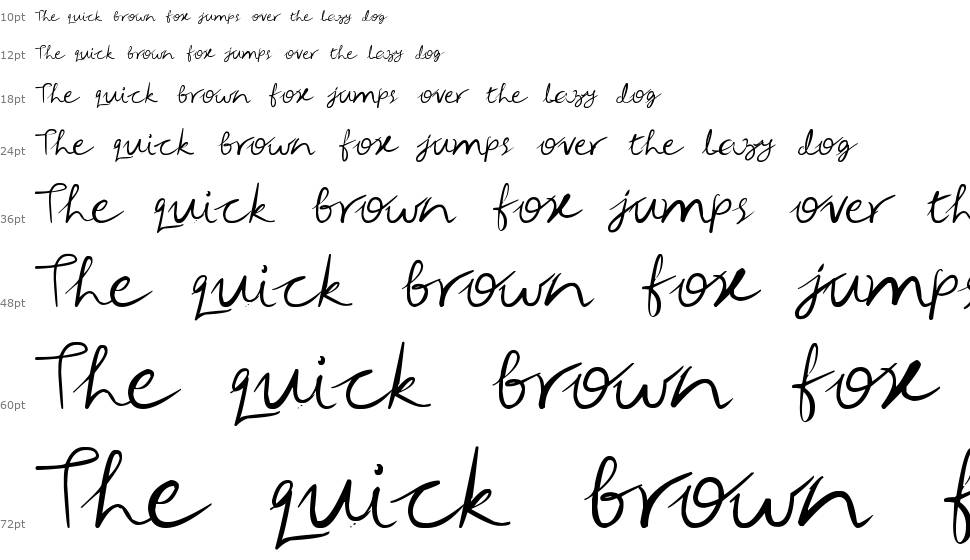 10pt The quick brown fox jumps over the lazy dog
12pt The quick brown fox jumps over the lazy dog
18pt The quick brown fox jumps over the lazy dog
24pt The quick brown fox jumps over the lazy dog
36pt The quick brown fox jumps over th
48pt The quick brown fox jumps
60pt The quick brown fox
72pt The quick brown f